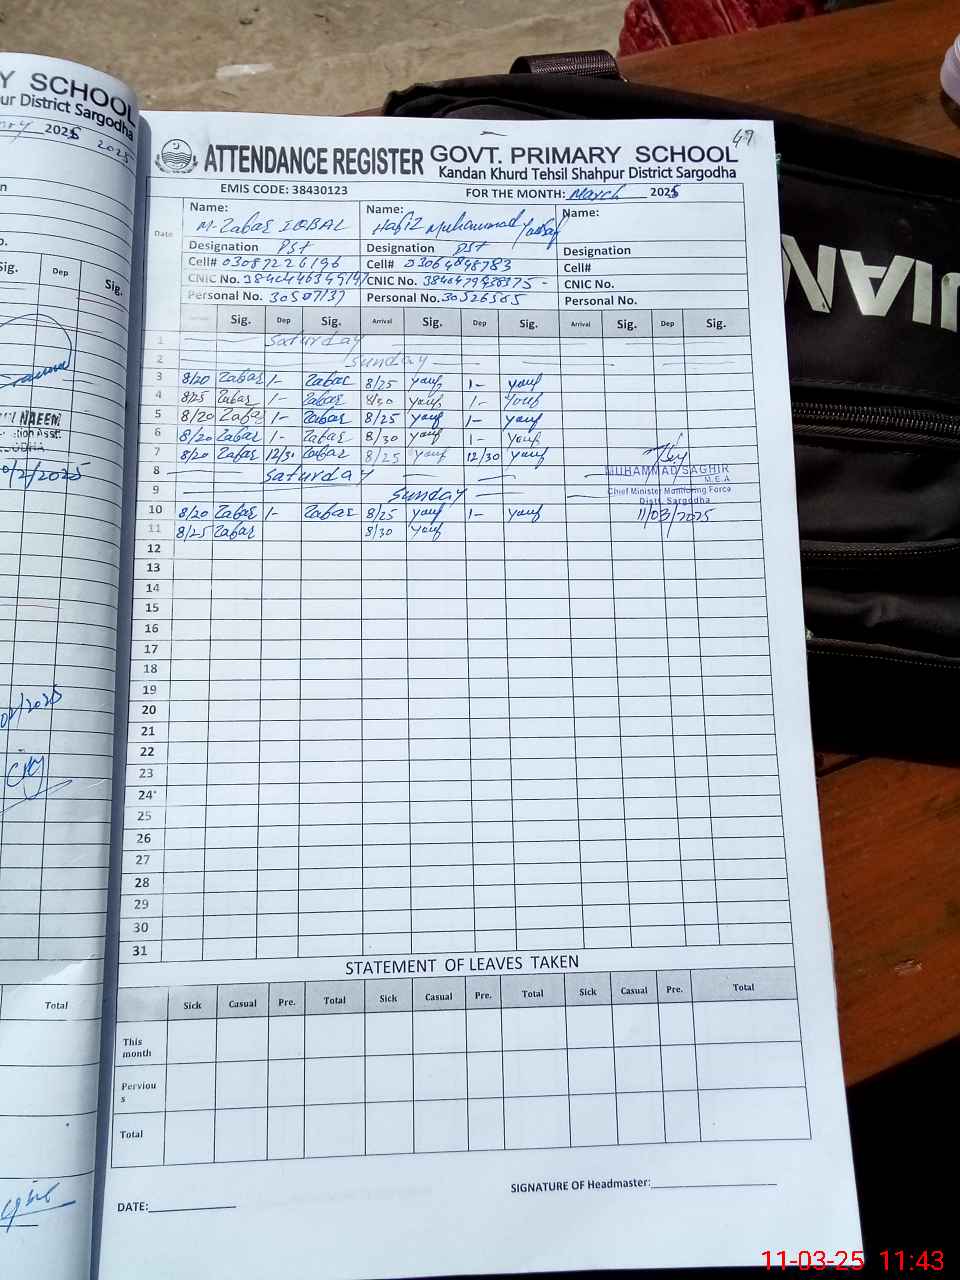 Y SCHOOL
ur District Sargodha
2025
2025
n
o.
Sig. Dep Sig.
NAEEM
0/2/2025
02/2025
Total
49
ATTENDANCE REGISTER GOVT. PRIMARY SCHOOL
Kandan Khurd Tehsil Shahpur District Sargodha
EMIS CODE: 38430123 FOR THE MONTH: March 2025
Date Name: Name: Name:
M-Zafar IQBAL Hafiz Muhammad Yousaf
Designation PST Designation PST Designation
Cell# 03087226196 Cell# 03064848783 Cell#
CNIC No. CNIC No. CNIC No.
Personal No. 30507137 Personal No. 30526565 Personal No.
Sig. Dep Sig. Arrival Sig. Dep Sig. Arrival Sig. Dep Sig.
1 Saturday
2 Sunday
3 8/20 Zafar 1- Zafar 8/25 Yousf 1- Yousf
4 8/25 Zafar 1- Zafar 8/30 Yousf 1- Yousf
5 8/20 Zafar 1- Zafar 8/25 Yousf 1- Yousf
6 8/20 Zafar 1- Zafar 8/30 Yousf 1- Yousf
7 8/20 Zafar 12/30 Zafar 8/25 Yousf 12/30 Yousf
8 Saturday MUHAMMAD SAGHIR
M.E.A
9 Sunday Chief Minister Monitoring Force
Distt. Sargodha
10 8/20 Zafar 1- Zafar 8/25 Yousf 1- Yousf 11/03/2025
11 8/25 Zafar 8/30 Yousf
12
13
14
15
16
17
18
19
20
21
22
23
24
25
26
27
28
29
30
31
STATEMENT OF LEAVES TAKEN
Sick Casual Pre. Total Sick Casual Pre. Total Sick Casual Pre. Total
This
month
Perviou
s
Total
SIGNATURE OF Headmaster:
DATE:
11-03-25 11:43